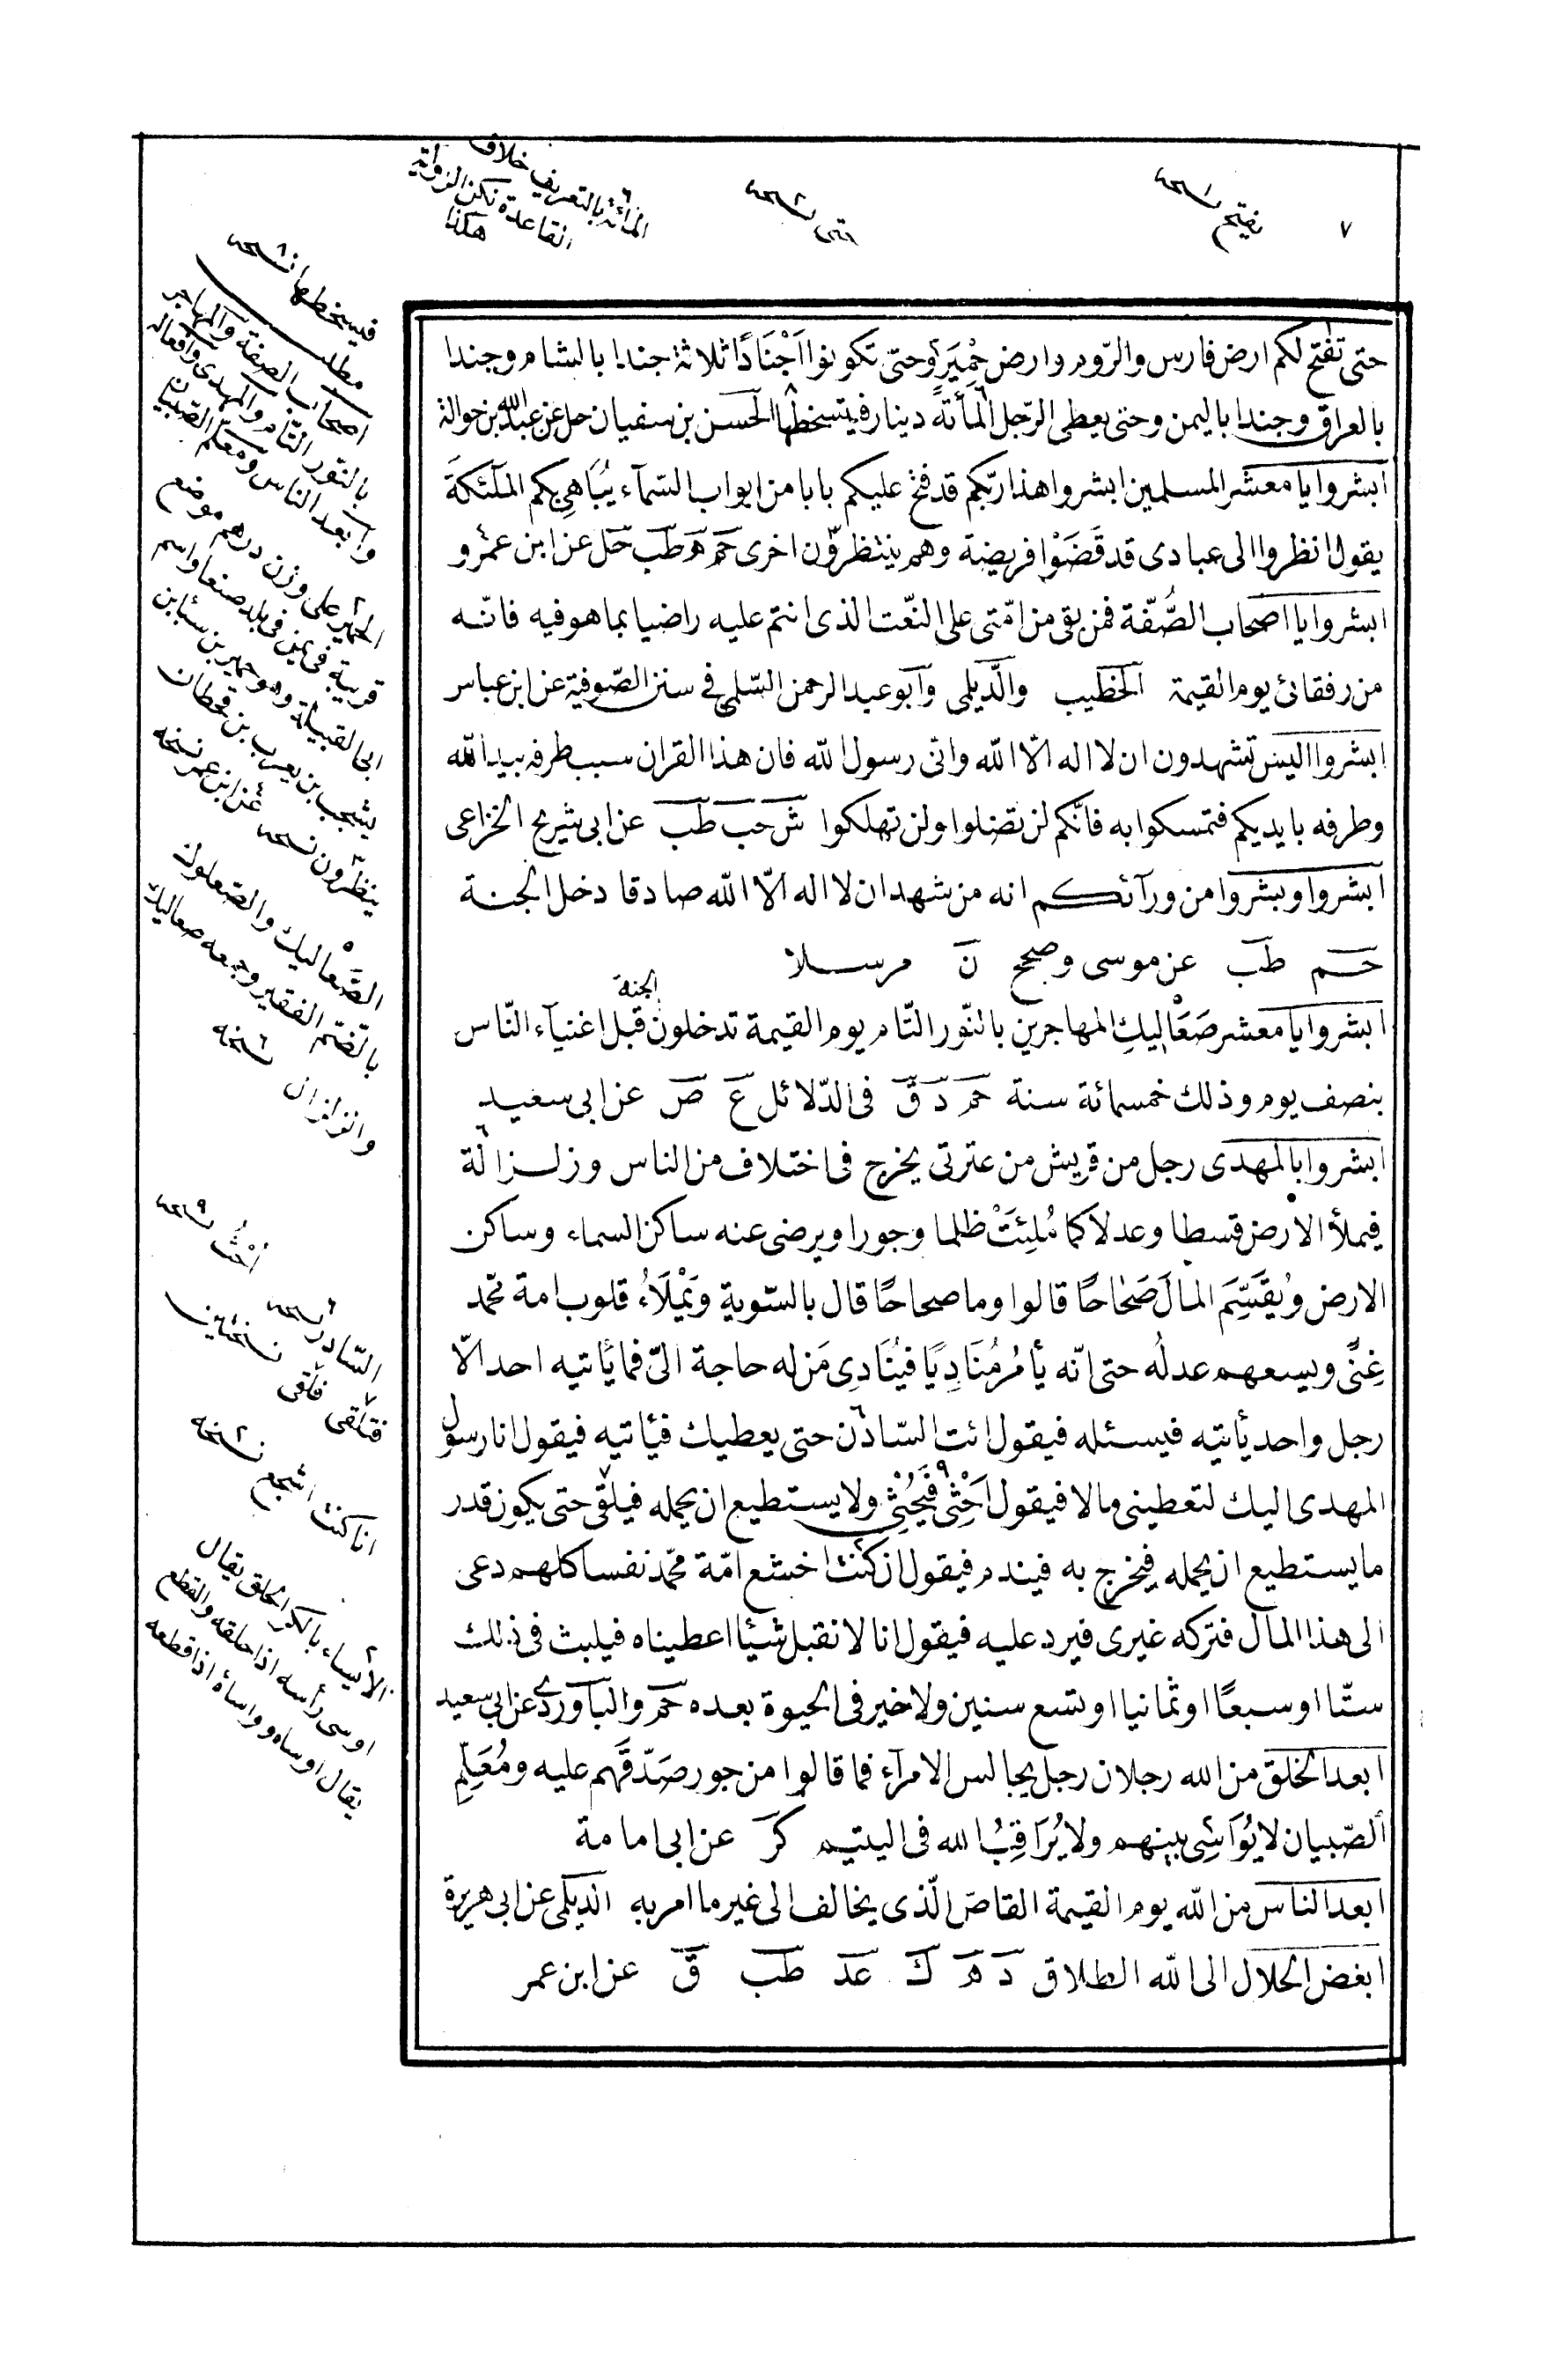 ٧
نفتح نسخه
نسخه
المائة بالتعريف خلاف
القاعدة لكن الرواية
هكذا
حتى تفتح لكم ارض فارس والرّوم وارض حِمْيَرَ وحتى تكونوا اَجْنَادًا ثلاثة جندا بالشام وجندا
بالعراق وجندا باليمن وحتى يعطى الرّجل المأتة دينار فيتسخطها الحسن بن سفيان حل عن عبد الله بن حوالة
ابشروا يا معشر المسلمين ابشروا هذا ربّكم قد فتح عليكم بابا من ابواب السّمآء يُبَاهِى بكم الملئكةَ
يقول انظروا الى عبادى قد قَضَوْا فريضة وهم ينتظرون اخرى حم ه طب حل عن ابن عمرو
ابشروا يا اصحاب الصُّفّة فمن بقى من امّتى على النّعت الذى انتم عليه راضيا بما هو فيه فانّه
من رفقائى يوم القيمة الخطيب والدّيلمى وابو عبد الرحمن السّلمى فى سنن الصّوفية عن ابن عباس
ابشروا اليس تشهدون ان لا اله الّا الله وانى رسول الله فان هذا القران سبب طرفه بيد الله
وطرفه بايديكم فتمسكوا به فانّكم لن تضلوا ولن تهلكوا ش حب طب عن ابى شريح الخزاعى
ابشروا وبشروا من ورآئكم انه من شهد ان لا اله الّا الله صادقا دخل الجنة
حم طب عن موسى وصحح ن مرسلا
ابشروا يا معشر صَعَاليكِ المهاجرين بالنّور التّام يوم القيمة تدخلون الجنة قبل اغنيآء النّاس
بنصف يوم وذلك خمسمائة سنة حم د ق فى الدّلائل ع ص عن ابى سعيد
ابشروا بالمهدى رجل من قريش من عترتى يخرج فى اختلاف من الناس وزلزالة
فيملأ الارض قسطا وعدلا كما مُلِئَتْ ظلما وجورا ويرضى عنه ساكن السماء وساكن
الارض ويُقَسِّمَ المالَ صَحَاحًا قالوا وما صحاحًا قال بالسّوية ويَمْلَاءُ قلوب امة محمّد
غِنًى ويسعهم عدله حتى انّه يأمُرُ مُنَادِيًا فَيُنَادِى مَن له حاجة الىّ فما يأتيه احد الّا
رجل واحد يأتيه فيسئله فيقول ائت السّادن حتى يعطيك فيأتيه فيقول انا رسول
المهدى اليك لتعطينى مالا فيقول اَحْثِ فَيَحْثِى ولا يستطيع ان يحمله فيلقى حتى يكون قدر
ما يستطيع ان يحمله فيخرج به فيندم فيقول ان كنت اخشع امّة محمّد نفسا كلهم دعى
الى هذا المال فتركه غيرى فيرد عليه فيقول انا لا نقبل شيئا اعطيناه فيلبث فى ذلك
ستّا او سبعًا او ثمانيا او تسع سنين ولا خير فى الحيوة بعده حم والبآوردى عن ابى سعيد
ابعد الخلق من الله رجلان رجل يجالس الامرآء فما قالوا من جور صدّقهم عليه ومُعَلِّمِ
الصّبيان لا يُوَاسِى بينهم ولا يُرَاقِبُ الله فى اليتيم كر عن ابى امامة
ابعد الناس من الله يوم القيمة القاصّ الّذى يخالف الى غير ما امر به الديلمى عن ابى هريرة
ابغض الحلال الى الله الطلاق د ه ك عد طب ق عن ابن عمر
فيسخطها نسخه
مطلب
اصحاب الصفة والمهاجر
بالنور التّام والمهدى وافعاله
وابعد الناس ومعلم الصّبيان
الحمير على وزن درهم موضع
قريبة فى يمن فى بلد صنعا واسم
ابى القبيلة وهو حمير بن سبا بن
يشجب بن يعرب بن قحطان
عن ابن عمر نسخه
ينظرون نسخه
الصَّعاليك والصّعلوك
بالضّم الفقير وجمعه صعاليك
وانزلزال نسخه
اُحْثُ نسخه
السّادر نسخه
فتلقى فلقى نسختين
انا كنت اشجع نسخه
الأيساء بالكسر الحلق يقال
اوسى رأسه اذا حلقه والقطع
يقال اوساه وواساه اذا قطعه